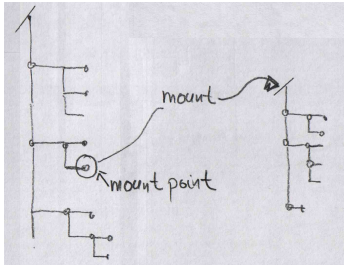 mount
mount point